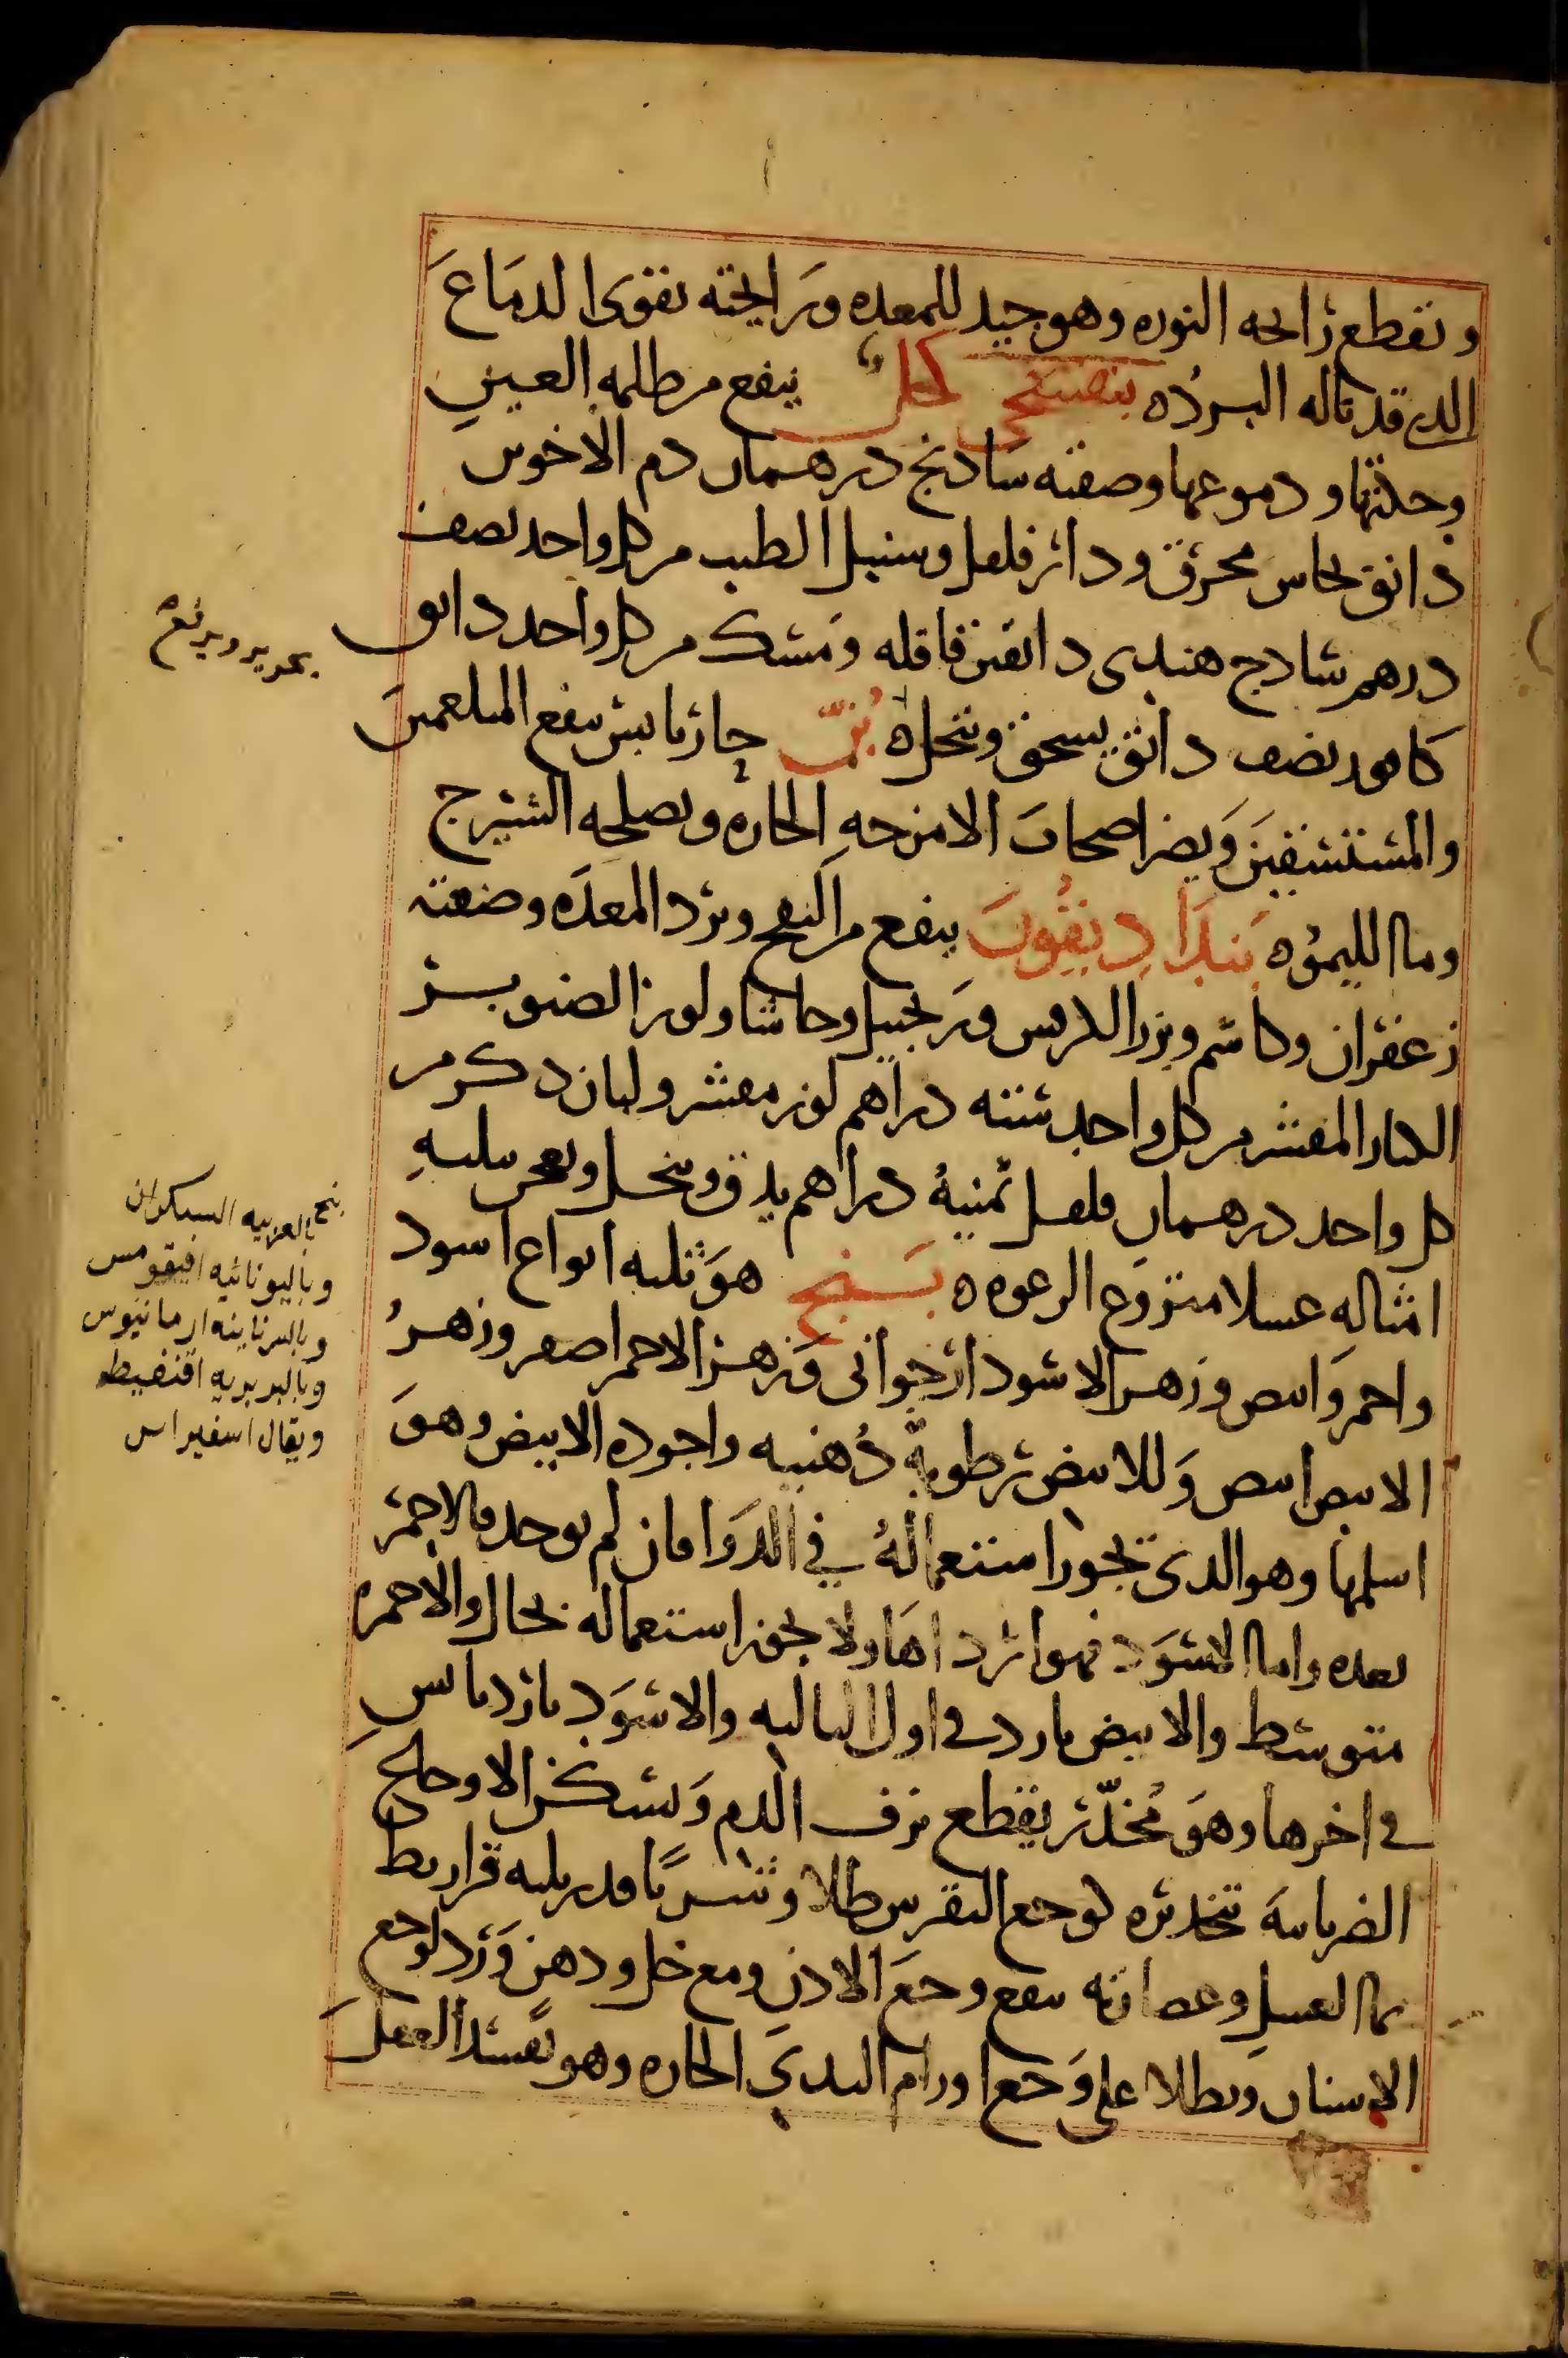 وتقطع رائحه النوره وهو جيد للمعده ورايحته تقوى الدماغ
الدى قد ناله البرده بنفسجى كحل ينفع من ظلمه العين
وحكتها ودموعها وصفته سادنج درهمان دم الاخوين
دانق نحاس محرق ودار فلفل وسنبل الطيب من كل واحد نصف
درهم سادج هندى دانقين قاقله ومسك من كل واحد دانق
كافور نصف دانق يسحق وينخل ه بن حار يابس ينفع المبلغمين
والمستسقين ويضر اصحاب الامزجه الحاره ويصلحه الشيرج
وما الليمو ه بنداديقون ينفع من النفخ وبرد المعده وصفته
زعفران وكاشم وبزر الكرفس وزنجبيل وحاشا ولوز الصنوبر
الكبار المقشر من كل واحد سته دراهم لوز مقشر ولبان دكر من
كل واحد درهمان فلفل ثمنية دراهم يدق وينخل ويعجن بثلثه
امثاله عسلا منزوع الرغوه ه بنج هو ثلثه انواع اسود
واحمر وابيض وزهر الاسود ارجوانى وزهر الاحمر اصفر وزهر
الابيض ابيض وللابيض رطوبة دهنيه واجوده الابيض وهو
اسلمها وهو الدى يجوز استعماله في الدوا فان لم يوجد فالاحمر
بعده واما الاسود فهو ارداها ولا يجوز استعماله بحال والاحمر
متوسط والابيض بارد في اول الثالثه والاسود بارد يابس
في اخرها وهو مخدر يقطع نزف الدم ويسكن الاوجاع
الضربانيه بتخديره لوجع النقرس طلا وشربا قدر ثلثه قراريط
بما العسل وعصارته ينفع وجع الادن ومع خل ودهن ورد لوجع
الاسنان ويطلا على وجع اورام الثدى الحاره وهو يفسد العقل
بنج بالعربيه السيكران
وباليونانيه افيقومس
وبالسريانيه ارمانيوس
وبالبربريه اقنفيط
ويقال اسفيراس